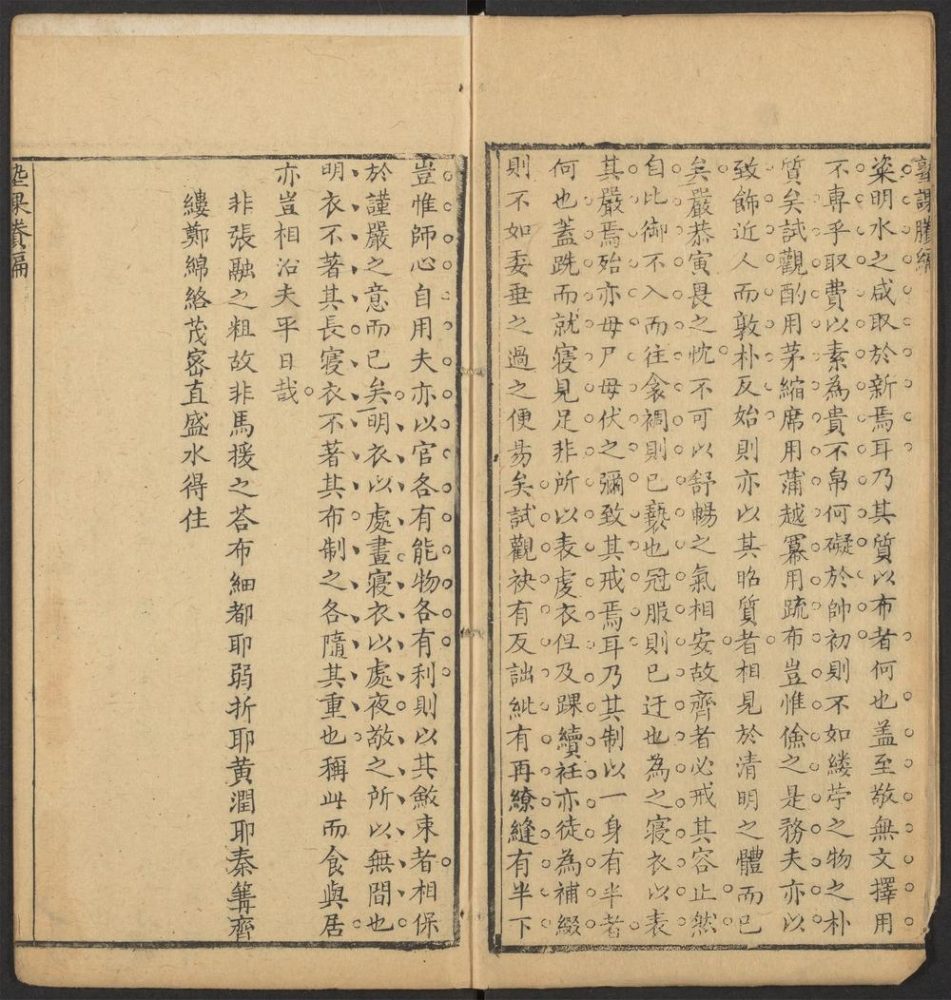 塾課賸編
粢明水之咸取於新焉耳乃其質以布者何也盖至敬無文擇用
不專乎取費以素為貴不帛何礙於帥初則不如縷苧之物之朴
質矣試觀酌用茅縮席用蒲越冪用疏布豈惟儉之是務夫亦以
致飾近人而敦朴反始則亦以其昭質者相見於清明之體而已
矣嚴恭寅畏之忱不可以舒暢之氣相安故齊者必戒其容止然
自比御不入而往衾裯則已褻也冠服則已迂也為之寢衣以表
其嚴焉殆亦毋尸毋伏之彌致其戒焉耳乃其制以一身有半者
何也蓋跣而就寢見足非所以表虔衣但及踝續衽亦徒為補綴
則不如委垂之過之便昜矣試觀袂有反詘紕有再繚縫有半下
豈惟師心自用夫亦以官各有能物各有利則以其斂束者相保
於謹嚴之意而已矣明衣以處晝寢衣以處夜敬之所以無間也
明衣不著其長寢衣不著其布制之各隨其重也稱此而食與居
亦豈相沿夫平日哉
非張融之粗故非馬援之荅布細都耶弱折耶黃潤耶秦篝齊
縷鄭綿絡茂密直盛水得住